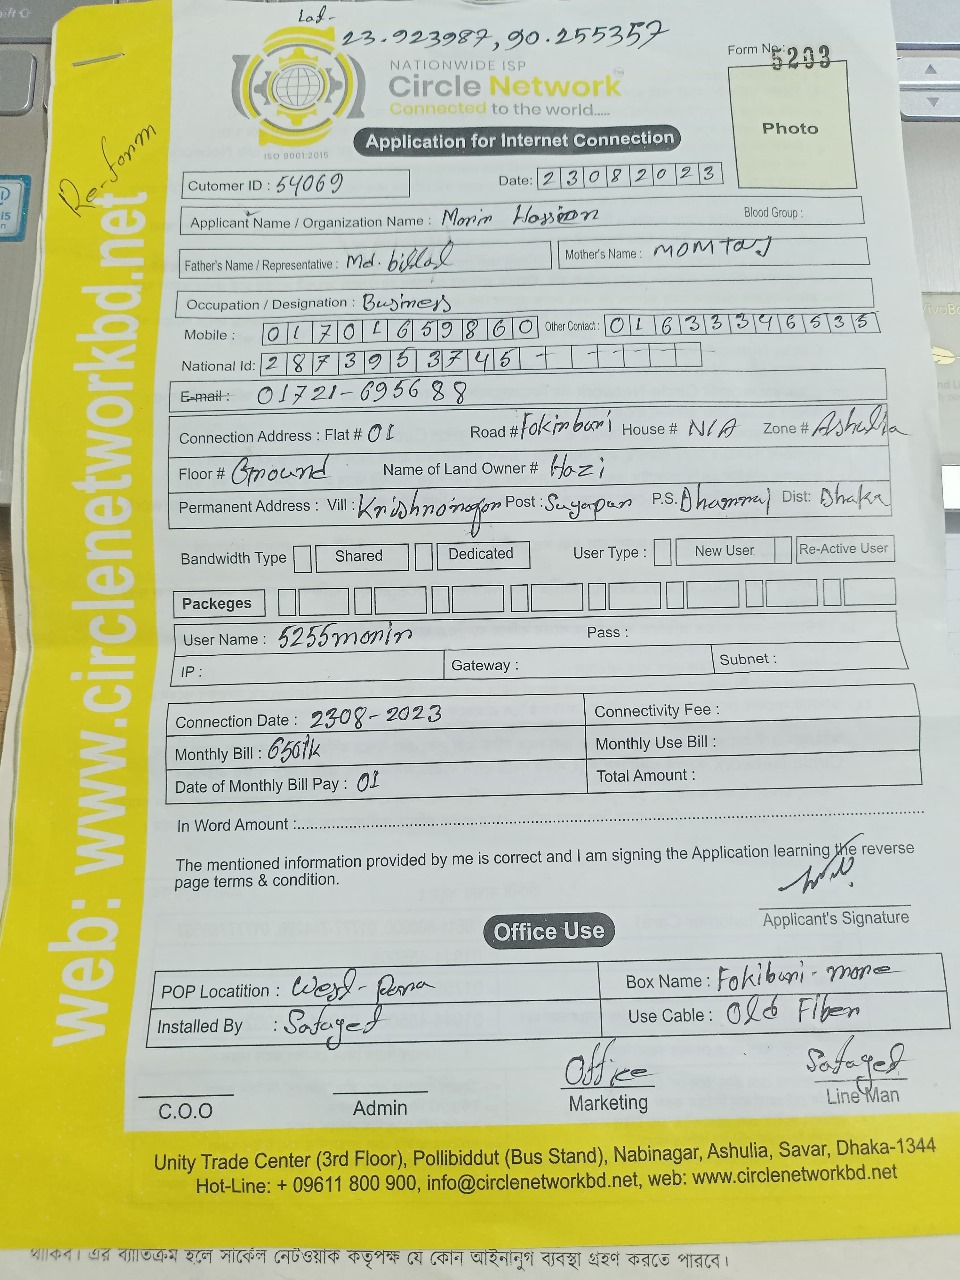 Lat-
23.923987, 90.255357
NATIONWIDE ISP
Circle Network
Connected to the world.....
ISO 9001:2015
Form No: 5203
Photo
Re-form
Application for Internet Connection
Cutomer ID : 54069 Date: 23082023
Applicant Name / Organization Name : Monir Hossion Blood Group :
Father's Name / Representative : Md. billal Mother's Name : MOMtaj
Occupation / Designation : Business
Mobile : 01701659860 Other Contact : 01633346535
National Id: 2873953745
E-mail : 01721-695688
Connection Address : Flat # 01 Road # Fokirbari House # N/A Zone # Ashulia
Floor # Ground Name of Land Owner # Hazi
Permanent Address : Vill : Krishnonagor Post : P.S. Dhamrai Dist: Dhaka
Bandwidth Type Shared Dedicated User Type : New User Re-Active User
Packeges
User Name : 5255monir Pass :
IP : Gateway : Subnet :
Connection Date : 2308-2023 Connectivity Fee :
Monthly Bill : 650tk Monthly Use Bill :
Date of Monthly Bill Pay : 01 Total Amount :
In Word Amount :
The mentioned information provided by me is correct and I am signing the Application learning the reverse
page terms & condition.
Applicant's Signature
Office Use
POP Locatition : West-Para Box Name : Fokibari-more
Installed By : Safayet Use Cable : Old Fiber
Office Safayet
C.O.O Admin Marketing Line Man
Unity Trade Center (3rd Floor), Pollibiddut (Bus Stand), Nabinagar, Ashulia, Savar, Dhaka-1344
Hot-Line: + 09611 800 900, info@circlenetworkbd.net, web: www.circlenetworkbd.net
web: www.circlenetworkbd.net
থাকিব। এর ব্যাতিক্রম হলে সার্কেল নেটওয়ার্ক কতৃপক্ষ যে কোন আইনানুগ ব্যবস্থা গ্রহণ করতে পারবে।